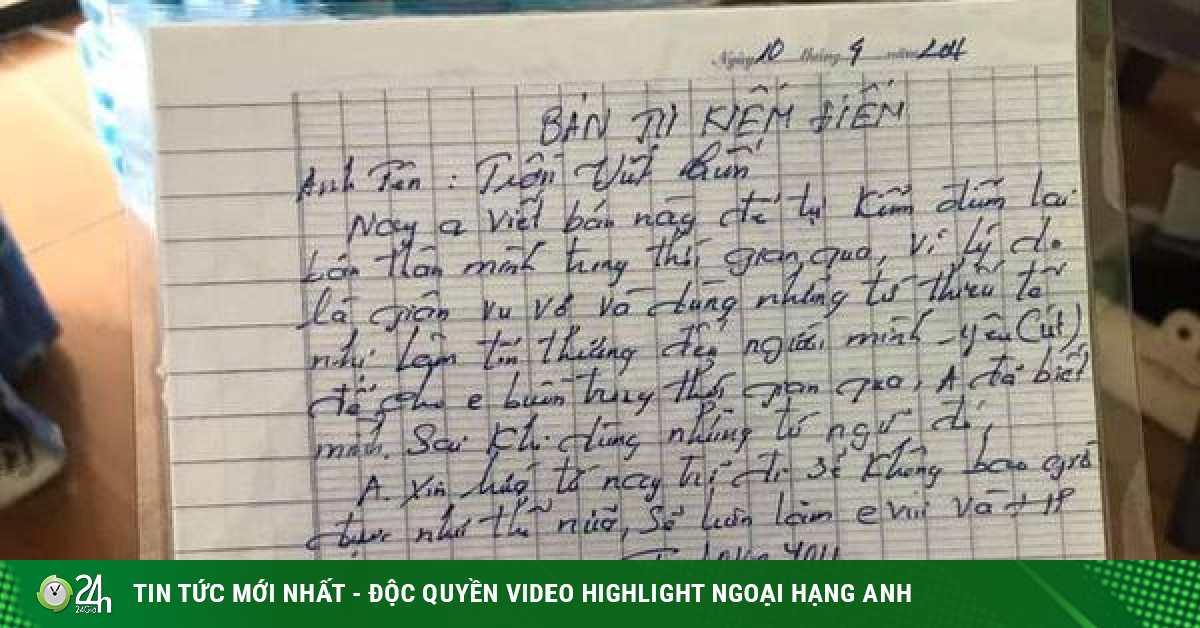 Ngày 10 tháng 9 năm
BẢN TỰ KIỂM ĐIỂM
Anh Tên : Trần
Nay a viết bản này để tự kiểm điểm lại
bản thân mình trong thời gian qua, Vì lý do
là giận vu vơ và dùng những từ thiếu tế
nhị làm tổn thương đến người mình yêu (Út)
để cho e buồn trong thời gian qua, A đã biết
mình Sai khi dùng những từ ngữ đó,
A. Xin hứa từ nay trở đi sẽ không bao giờ
được như thế nữa, Sẽ luôn làm e vui và + HP
24h
24Giờ
TIN TỨC MỚI NHẤT - ĐỘC QUYỀN VIDEO HIGHLIGHT NGOẠI HẠNG ANH